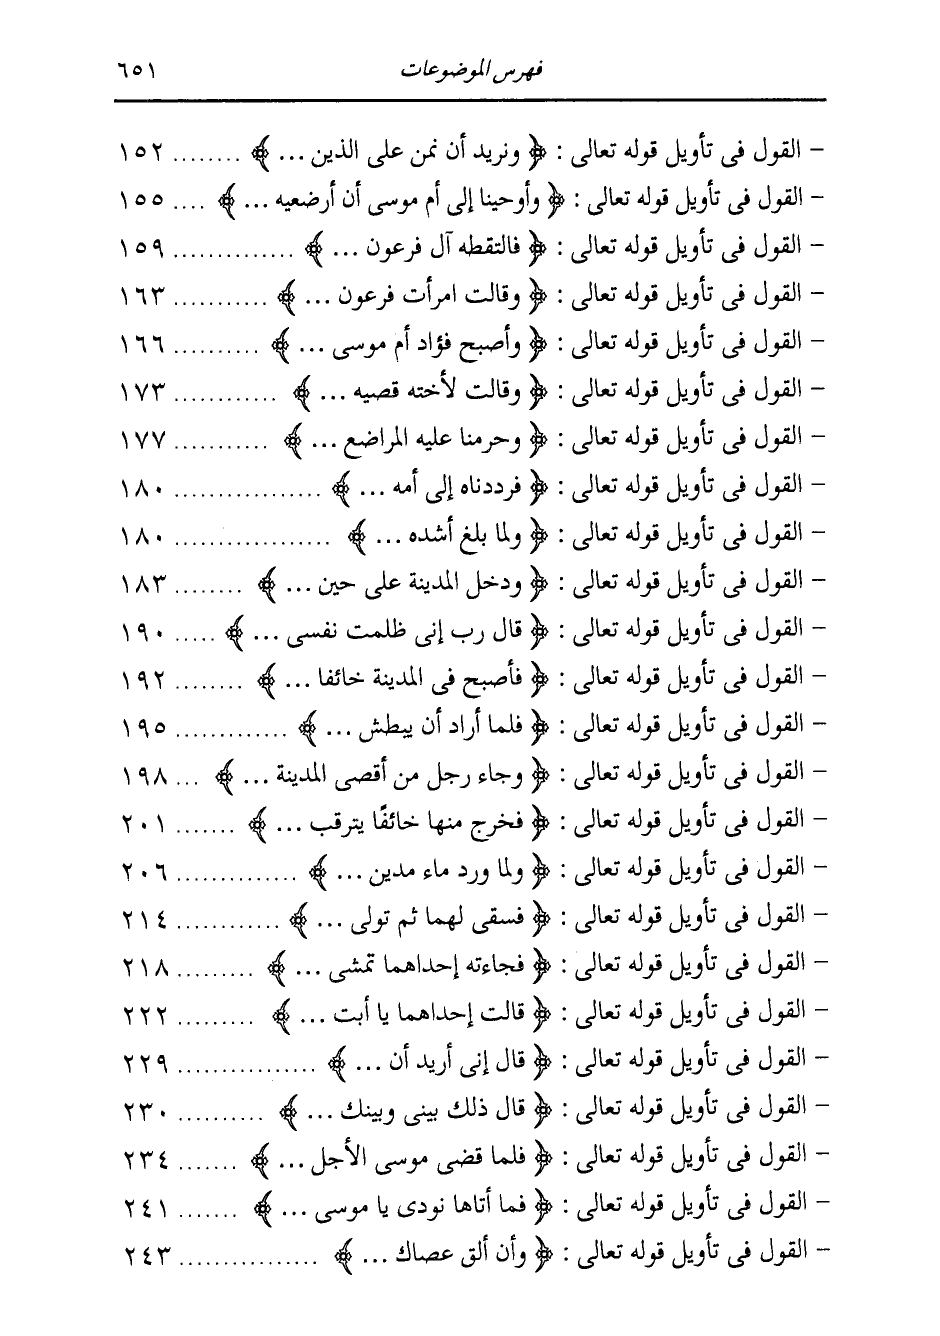 فهرس الموضوعات ٦٥١
– القول فى تأويل قوله تعالى : ﴿ ونريد أن نمن على الذين ... ﴾ ........ ١٥٢
– القول فى تأويل قوله تعالى : ﴿ وأوحينا إلى أم موسى أن أرضعيه ... ﴾ .... ١٥٥
– القول فى تأويل قوله تعالى : ﴿ فالتقطه آل فرعون ... ﴾ .............. ١٥٩
– القول فى تأويل قوله تعالى : ﴿ وقالت امرأت فرعون ... ﴾ ........... ١٦٣
– القول فى تأويل قوله تعالى : ﴿ وأصبح فؤاد أم موسى ... ﴾ .......... ١٦٦
– القول فى تأويل قوله تعالى : ﴿ وقالت لأخته قصيه ... ﴾ ............ ١٧٣
– القول فى تأويل قوله تعالى : ﴿ وحرمنا عليه المراضع ... ﴾ ........... ١٧٧
– القول فى تأويل قوله تعالى : ﴿ فرددناه إلى أمه ... ﴾ ................. ١٨٠
– القول فى تأويل قوله تعالى : ﴿ ولما بلغ أشده ... ﴾ .................. ١٨٠
– القول فى تأويل قوله تعالى : ﴿ ودخل المدينة على حين ... ﴾ ........ ١٨٣
– القول فى تأويل قوله تعالى : ﴿ قال رب إنى ظلمت نفسى ... ﴾ ..... ١٩٠
– القول فى تأويل قوله تعالى : ﴿ فأصبح فى المدينة خائفا ... ﴾ ........ ١٩٢
– القول فى تأويل قوله تعالى : ﴿ فلما أراد أن يبطش ... ﴾ ............. ١٩٥
– القول فى تأويل قوله تعالى : ﴿ وجاء رجل من أقصى المدينة ... ﴾ ... ١٩٨
– القول فى تأويل قوله تعالى : ﴿ فخرج منها خائفًا يترقب ... ﴾ ....... ٢٠١
– القول فى تأويل قوله تعالى : ﴿ ولما ورد ماء مدين ... ﴾ .............. ٢٠٦
– القول فى تأويل قوله تعالى : ﴿ فسقى لهما ثم تولى ... ﴾ ............ ٢١٤
– القول فى تأويل قوله تعالى : ﴿ فجاءته إحداهما تمشى ... ﴾ ......... ٢١٨
– القول فى تأويل قوله تعالى : ﴿ قالت إحداهما يا أبت ... ﴾ ......... ٢٢٢
– القول فى تأويل قوله تعالى : ﴿ قال إنى أريد أن ... ﴾ ................ ٢٢٩
– القول فى تأويل قوله تعالى : ﴿ قال ذلك بينى وبينك ... ﴾ .......... ٢٣٠
– القول فى تأويل قوله تعالى : ﴿ فلما قضى موسى الأجل ... ﴾ ....... ٢٣٤
– القول فى تأويل قوله تعالى : ﴿ فما أتاها نودى يا موسى ... ﴾ ....... ٢٤١
– القول فى تأويل قوله تعالى : ﴿ وأن ألق عصاك ... ﴾ ................ ٢٤٣